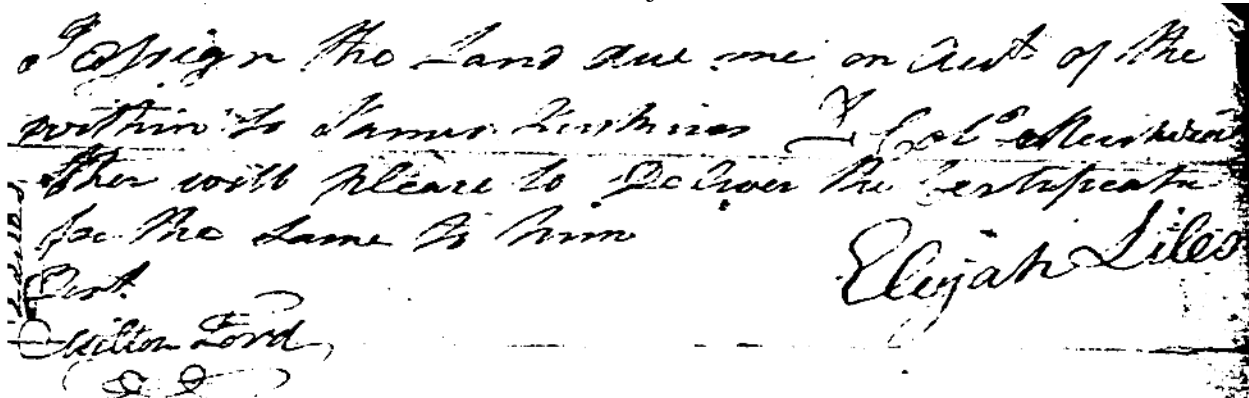 I assign the Land due me on Acct of the
within to James & Colo
ther will please to Deliver the Certificate
for the same to him
Elijah Liles
Test
Milton Ford